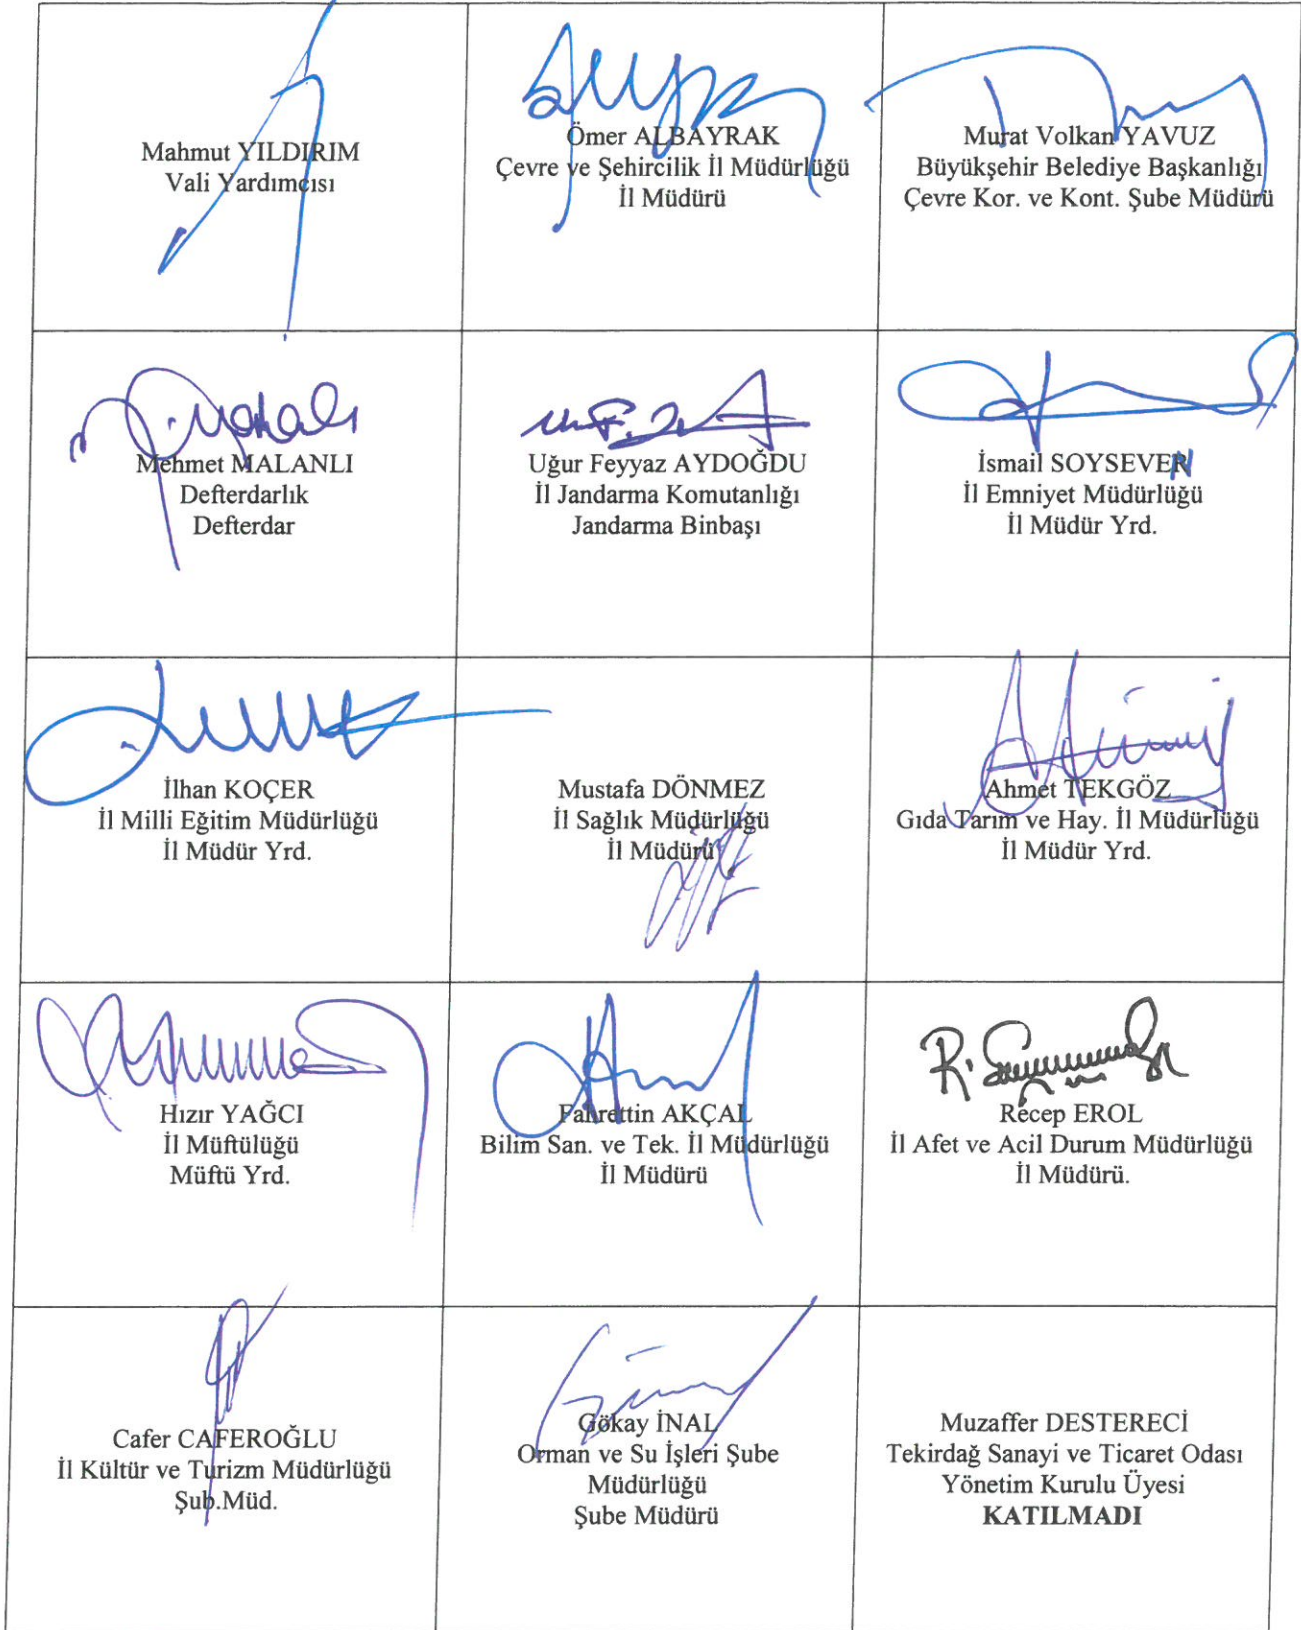 Mahmut YILDIRIM
Vali Yardımcısı
Ömer ALBAYRAK
Çevre ve Şehircilik İl Müdürlüğü
İl Müdürü
Murat Volkan YAVUZ
Büyükşehir Belediye Başkanlığı
Çevre Kor. ve Kont. Şube Müdürü
Mehmet MALANLI
Defterdarlık
Defterdar
Uğur Feyyaz AYDOĞDU
İl Jandarma Komutanlığı
Jandarma Binbaşı
İsmail SOYSEVEN
İl Emniyet Müdürlüğü
İl Müdür Yrd.
İlhan KOÇER
İl Milli Eğitim Müdürlüğü
İl Müdür Yrd.
Mustafa DÖNMEZ
İl Sağlık Müdürlüğü
İl Müdürü
Ahmet TEKGÖZ
Gıda Tarım ve Hay. İl Müdürlüğü
İl Müdür Yrd.
Hızır YAĞCI
İl Müftülüğü
Müftü Yrd.
Fahrettin AKÇAL
Bilim San. ve Tek. İl Müdürlüğü
İl Müdürü
Recep EROL
İl Afet ve Acil Durum Müdürlüğü
İl Müdürü.
Cafer CAFEROĞLU
İl Kültür ve Turizm Müdürlüğü
Şub.Müd.
Gökay İNAL
Orman ve Su İşleri Şube
Müdürlüğü
Şube Müdürü
Muzaffer DESTERECİ
Tekirdağ Sanayi ve Ticaret Odası
Yönetim Kurulu Üyesi
KATILMADI